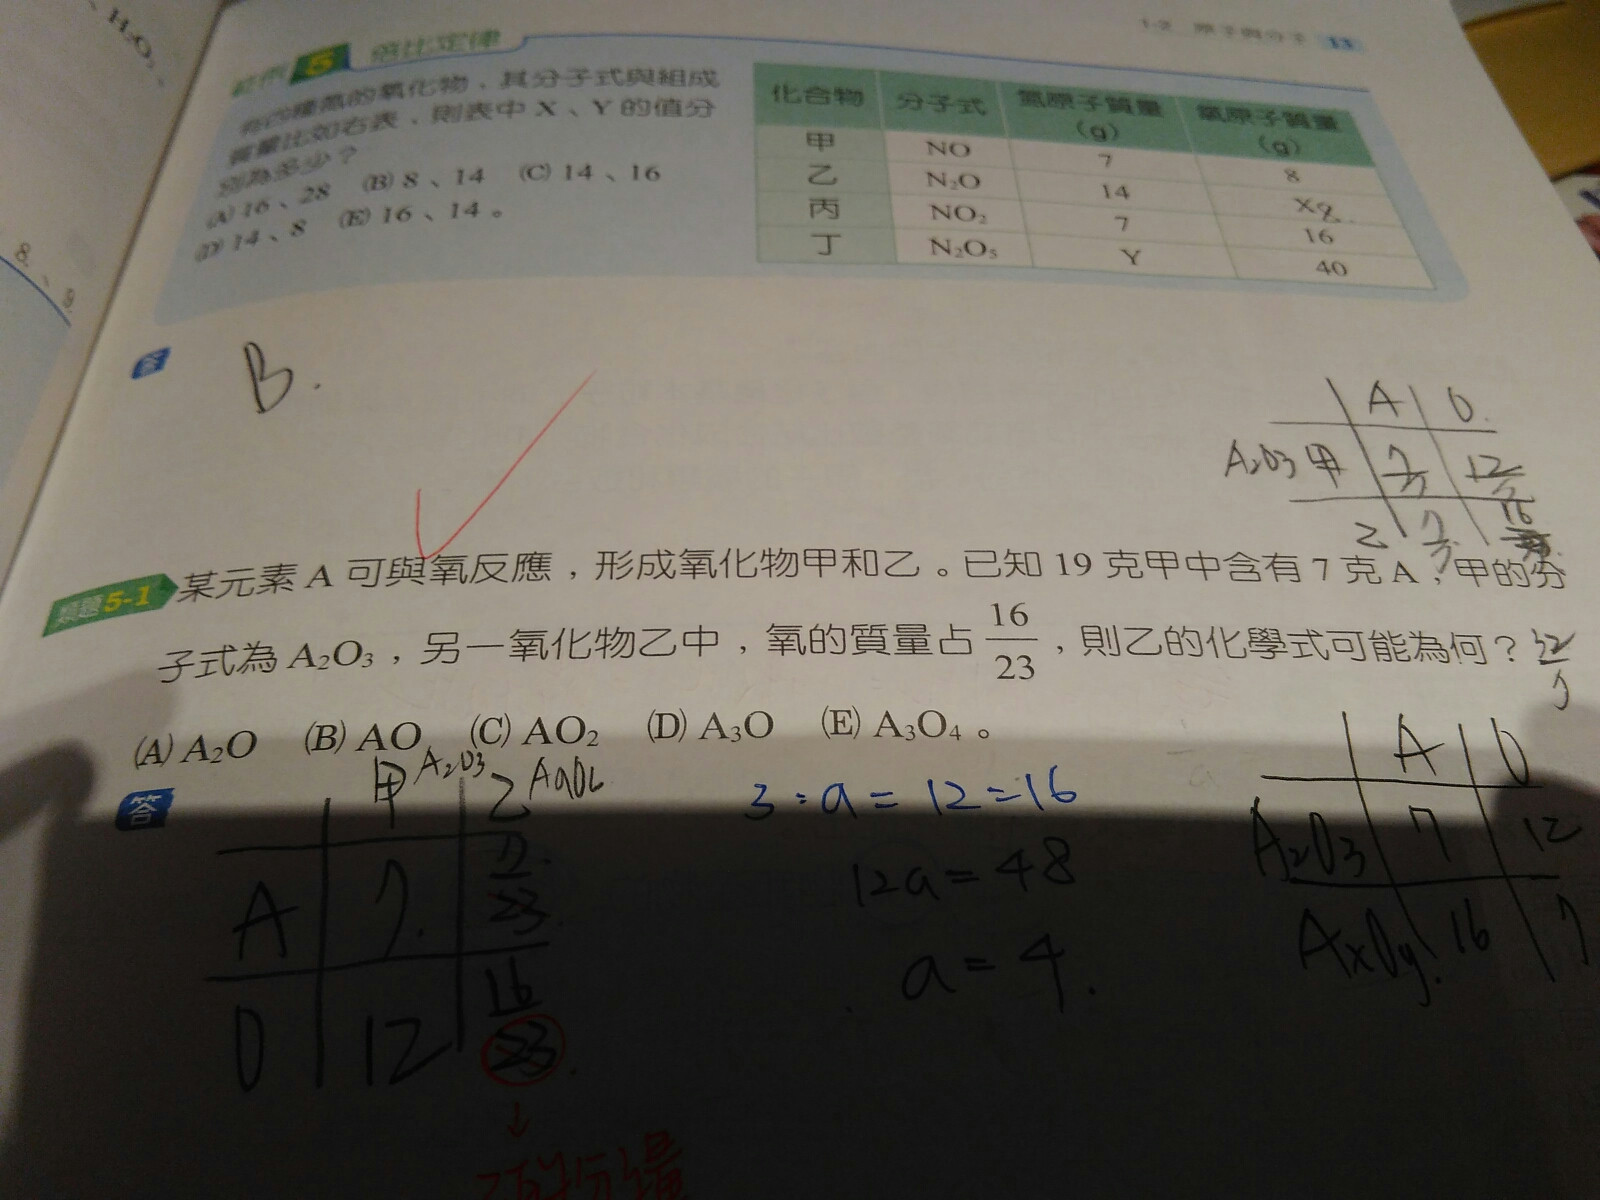 H₂O₂、
1-2 原子與分子 13
範例 5 倍比定律
有四種氮的氧化物，其分子式與組成
質量比如右表，則表中 X、Y 的值分
別為多少？
(A) 16、28 (B) 8、14 (C) 14、16
(D) 14、8 (E) 16、14。
化合物 分子式 氮原子質量(g) 氧原子質量(g)
甲 NO 7 8
乙 N₂O 14 X 8
丙 NO₂ 7 16
丁 N₂O₅ Y 40
8.、9
答 B.
A O.
A₂O₃ 甲 7 12
乙 7 16
類題 5-1 某元素 A 可與氧反應，形成氧化物甲和乙。已知 19 克甲中含有 7 克 A，甲的分
子式為 A₂O₃，另一氧化物乙中，氧的質量占 16/23，則乙的化學式可能為何？
(A) A₂O (B) AO (C) AO₂ (D) A₃O (E) A₃O₄。
答
甲 A₂O₃ 乙 AaOb
A 7. 7 23
O 12 16 23
3:a=12=16
12a=48
a=4.
A O
A₂O₃ 7 12
AxOy 16 7